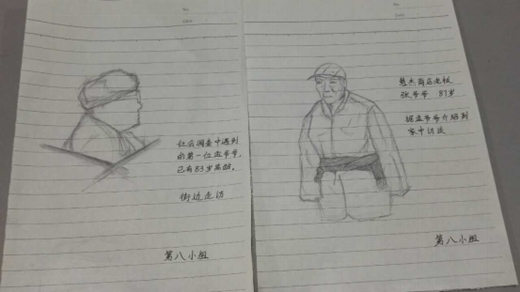 No.
Date
社会调查中遇到
的第一位孟爷爷,
已有83岁高龄。
街边走访
第八小组
No.
Date
张爷爷 81岁
据孟爷爷介绍到
家中访谈
第八小组